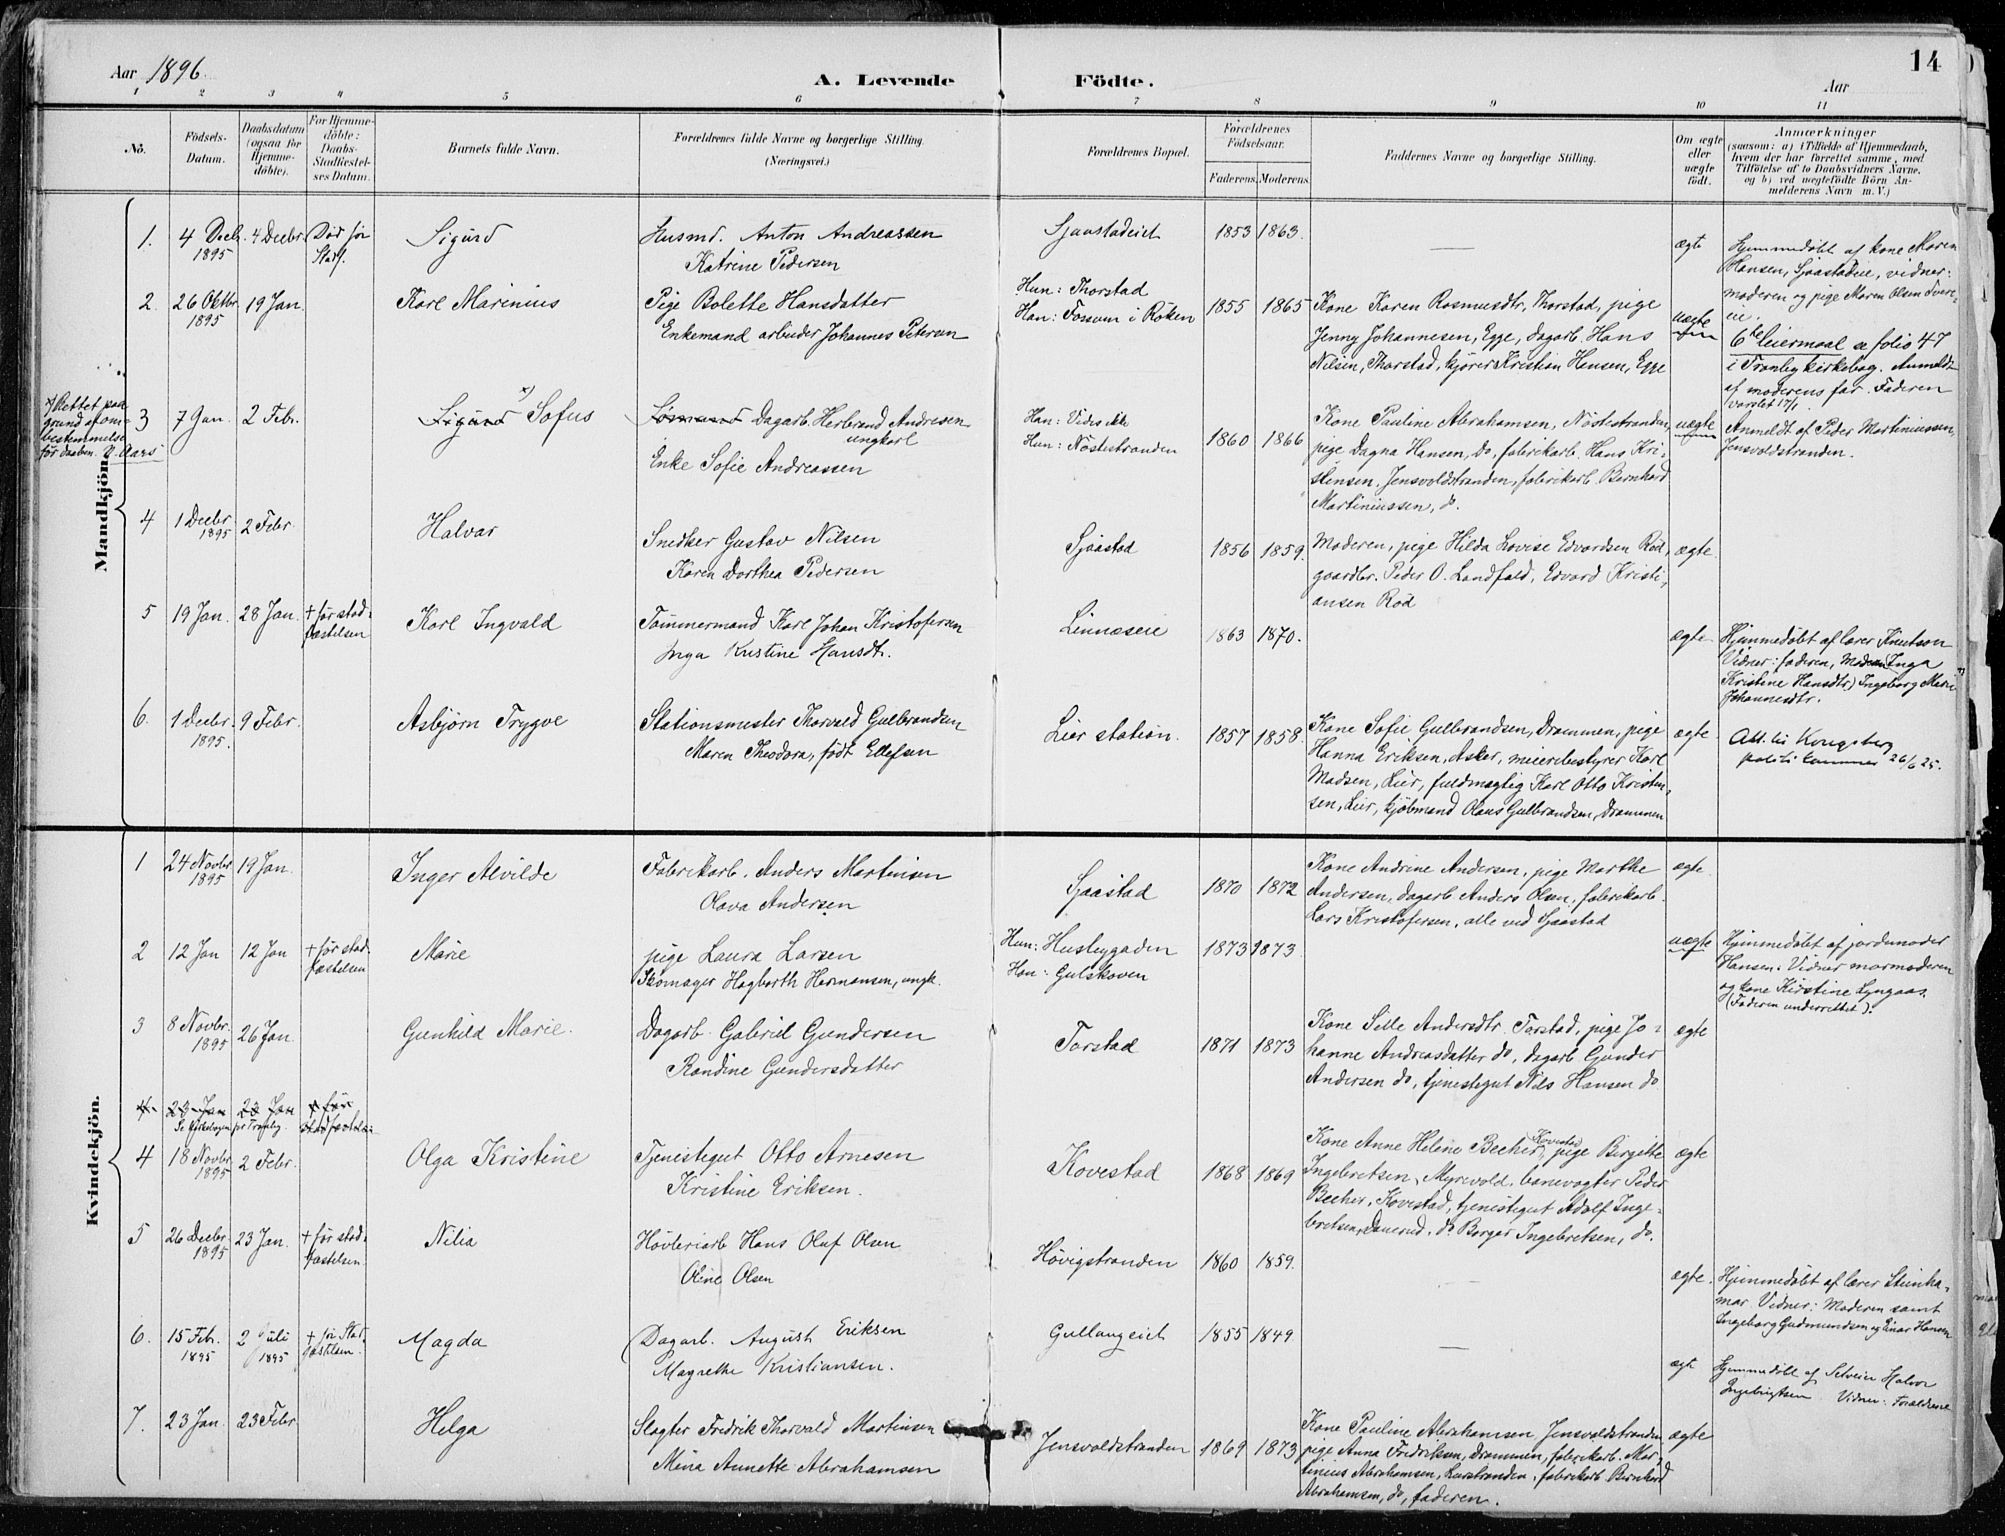 14
Aar 1896.
A. Levende Födte.
Aar
1 2 3 4 5 6 7 8 9 10 11
Nö.
Födsels-
Datum.
Daabsdatum
(ogsaa for
Hjemme-
döbte).
For Hjemme-
döbte:
Daabs-
Stadfæstel-
ses Datum.
Barnets fulde Navn.
Forældrenes fulde Navne og borgerlige Stilling.
(Næringsvei.)
Forældrenes Bopæl.
Forældrenes
Födselsaar.
Faderens. Moderens.
Faddernes Navne og borgerlige Stilling.
Om ægte
eller
uægte
födt.
Anmærkninger
(saasom: a) i Tilfælde af Hjemmedaab,
hvem der har forrettet samme, med
Tilföielse af to Daabsvidners Navne,
og b) ved uægtefödte Börn An-
melderens Navn m. V.)
Mandkjön.
1. 4 Decbr. 1895 4 Decbr. Död før Stadf. Sigurd
Husmd. Anton Andreassen
Katrine Pedersen
Sjaastadeiet 1853 1863. — ægte
Hjemmedöbt af kone Maren
Hansen, Sjaastadeie, vidner:
moderen og pige Maren Olsen Tvere-
ie.
2. 26 Oktbr. 1895 19 Jan. Karl Marinius
Pige Bolette Hansdatter
Enkemand arbeider Johannes Petersen
Hun: Thorstad
Han: Fossum i Röken
1855 1865
Kone Karen Rasmusdtr, Thorstad, pige
Jenny Johannesen, Egge, dagarb. Hans
Nilsen, Thorstad, kjører Kristian Hansen, Egge
uægte
6te leiermaal se folio 47
i Tranby kirkebog. Anmeldt
af moderens far. Faderen
varslet 17/1.
x) Rettet paa
grund af om-
bestemmelse
før daaben. D. Aars
3 7 Jan. 2 Febr. Sigurd x) Sofus
Dagarb. Herbrand Andresen
ungkarl
Enke Sofie Andreassen
Han: Vides ikke
Hun: Nöstestranden
1860 1866
Kone Pauline Abrahamsen, Nöstestranden,
pige Dagna Hansen, do, fabrikarb. Hans Kri-
stensen, Jensvoldstranden, fabrikarb. Bernhard
Martiniussen, do.
uægte
Anmeldt af Peder Martiniussen,
Jensvoldstranden.
4 1 Decbr. 1895 2 Febr. Halvar
Snedker Gustav Nilsen
Karen Dorthea Pedersen
Sjaastad 1856 1859.
Moderen, pige Hilda Lovise Edvardsen Röd,
gaardbr. Peder O. Landfald, Edvard Kristi-
ansen Röd
ægte
5 19 Jan. 28 Jan. + før stad-
fæstelsen Karl Ingvald
Tømmermand Karl Johan Kristofersen
Inga Kristine Hansdt.
Linnæseie 1863 1870. ægte
Hjemmedöbt af lærer Knutson
Vidner: faderen, Moderen (Inga
Kristine Hansdtr) Ingeborg Marie
Johannesdtr.
6. 1 Decbr. 1895. 9 Febr. Asbjørn Trygve
Stationsmester Thorvald Gulbrandsen
Maren Theodora, født Ellefsen
Lier station. 1857 1858.
Kone Sofie Gulbrandsen, Drammen, pige
Hanna Eriksen, Asker, meieribestyrer Karl
Madsen, Lier, fuldmægtig Karl Otto Kristen-
sen, Lier, kjöbmand Olaus Gulbrandsen, Drammen
ægte
Att. til Kongsberg
politikammer 26/6 25.
Kvindekjön.
1 24 Novbr 1895 19 Jan. Inger Alvilde
Fabrikarb. Anders Martinsen
Olava Andersen
Sjaastad 1870 1872
Kone Andrine Andersen, pige Marthe
Andersen, dagarb Anders Olsen, fabrikarb.
Lars Kristofersen, alle ved Sjaastad
ægte
2 12 Jan 12 Jan + før stad-
fæstelsen Marie
pige Laura Larsen
Skomager Hagbarth Hermansen, ungk.
Hun: Husbygaden
Han: Gulskoven
1873 1873. uægte
Hjemmedöbt af jordemoder
Hansen. Vidner mormoderen
og kone Kirstine Lyngaas.
(Faderen underrettet).
3 8 Novbr. 1895 26 Jan. Gunhild Marie.
Dagarb. Gabriel Gundersen
Randine Gundersdatter
Torstad 1871 1873
Kone Sille Andersdtr. Torstad, pige Jo-
hanne Andreasdatter do, dagarb Gunder
Andersen do, tjenestegut Nils Hansen do
ægte
4. 23 Jan 23 Jan + før
stadfæstelse
Se kirkebogen for Tranby.
4 18 Novbr 1895 2 Febr. Olga Kristine
Tjenestegut Otto Arnesen
Kristine Eriksen.
Kovestad 1868 1869
Kone Anne Helene Becher, Kovestad, pige Birgitte
Ingebretsen, Myrvold, banevogter Peder
Becher, Kovestad, tjenestegut Adolf Inge-
bretsen, do. Borger Ingebretsen, do.
ægte
5 26 Decbr. 1895 23 Jan. + før stad-
fæstelsen. Nilia
Høvleriarb Hans Oluf Olsen
Oline Olsen
Høvigstranden 1860 1859. — ægte.
Hjemmedöbt af lærer Steinha-
mar. Vidner: Moderen samt
Ingeborg Gudmundsen og Einar Hansen
6. 15 Feb. 1895 2 Juli 1895 + før Stad-
fæstelsen. Magda
Dagarb. August Eriksen
Magrethe Kristiansen.
Gullaugeiet 1855 1849 — ægte
Hjemmedöbt af Halvor
Ingebrigtsen. Vidner: Forældrene
7. 23 Jan. 23 Febr. Helga
Slagter Fredrik Thorvald Martinsen
Mina Annette Abrahamsen
Jensvoldstranden 1869 1873
Kone Pauline Abrahamsen, Jensvoldstranden,
pige Anna Fredriksen, Drammen, fabrikarb. Mar-
tinius Abrahamsen, Lierstranden, fabrikarb Bernhard
Abrahamsen, do, faderen.
ægte